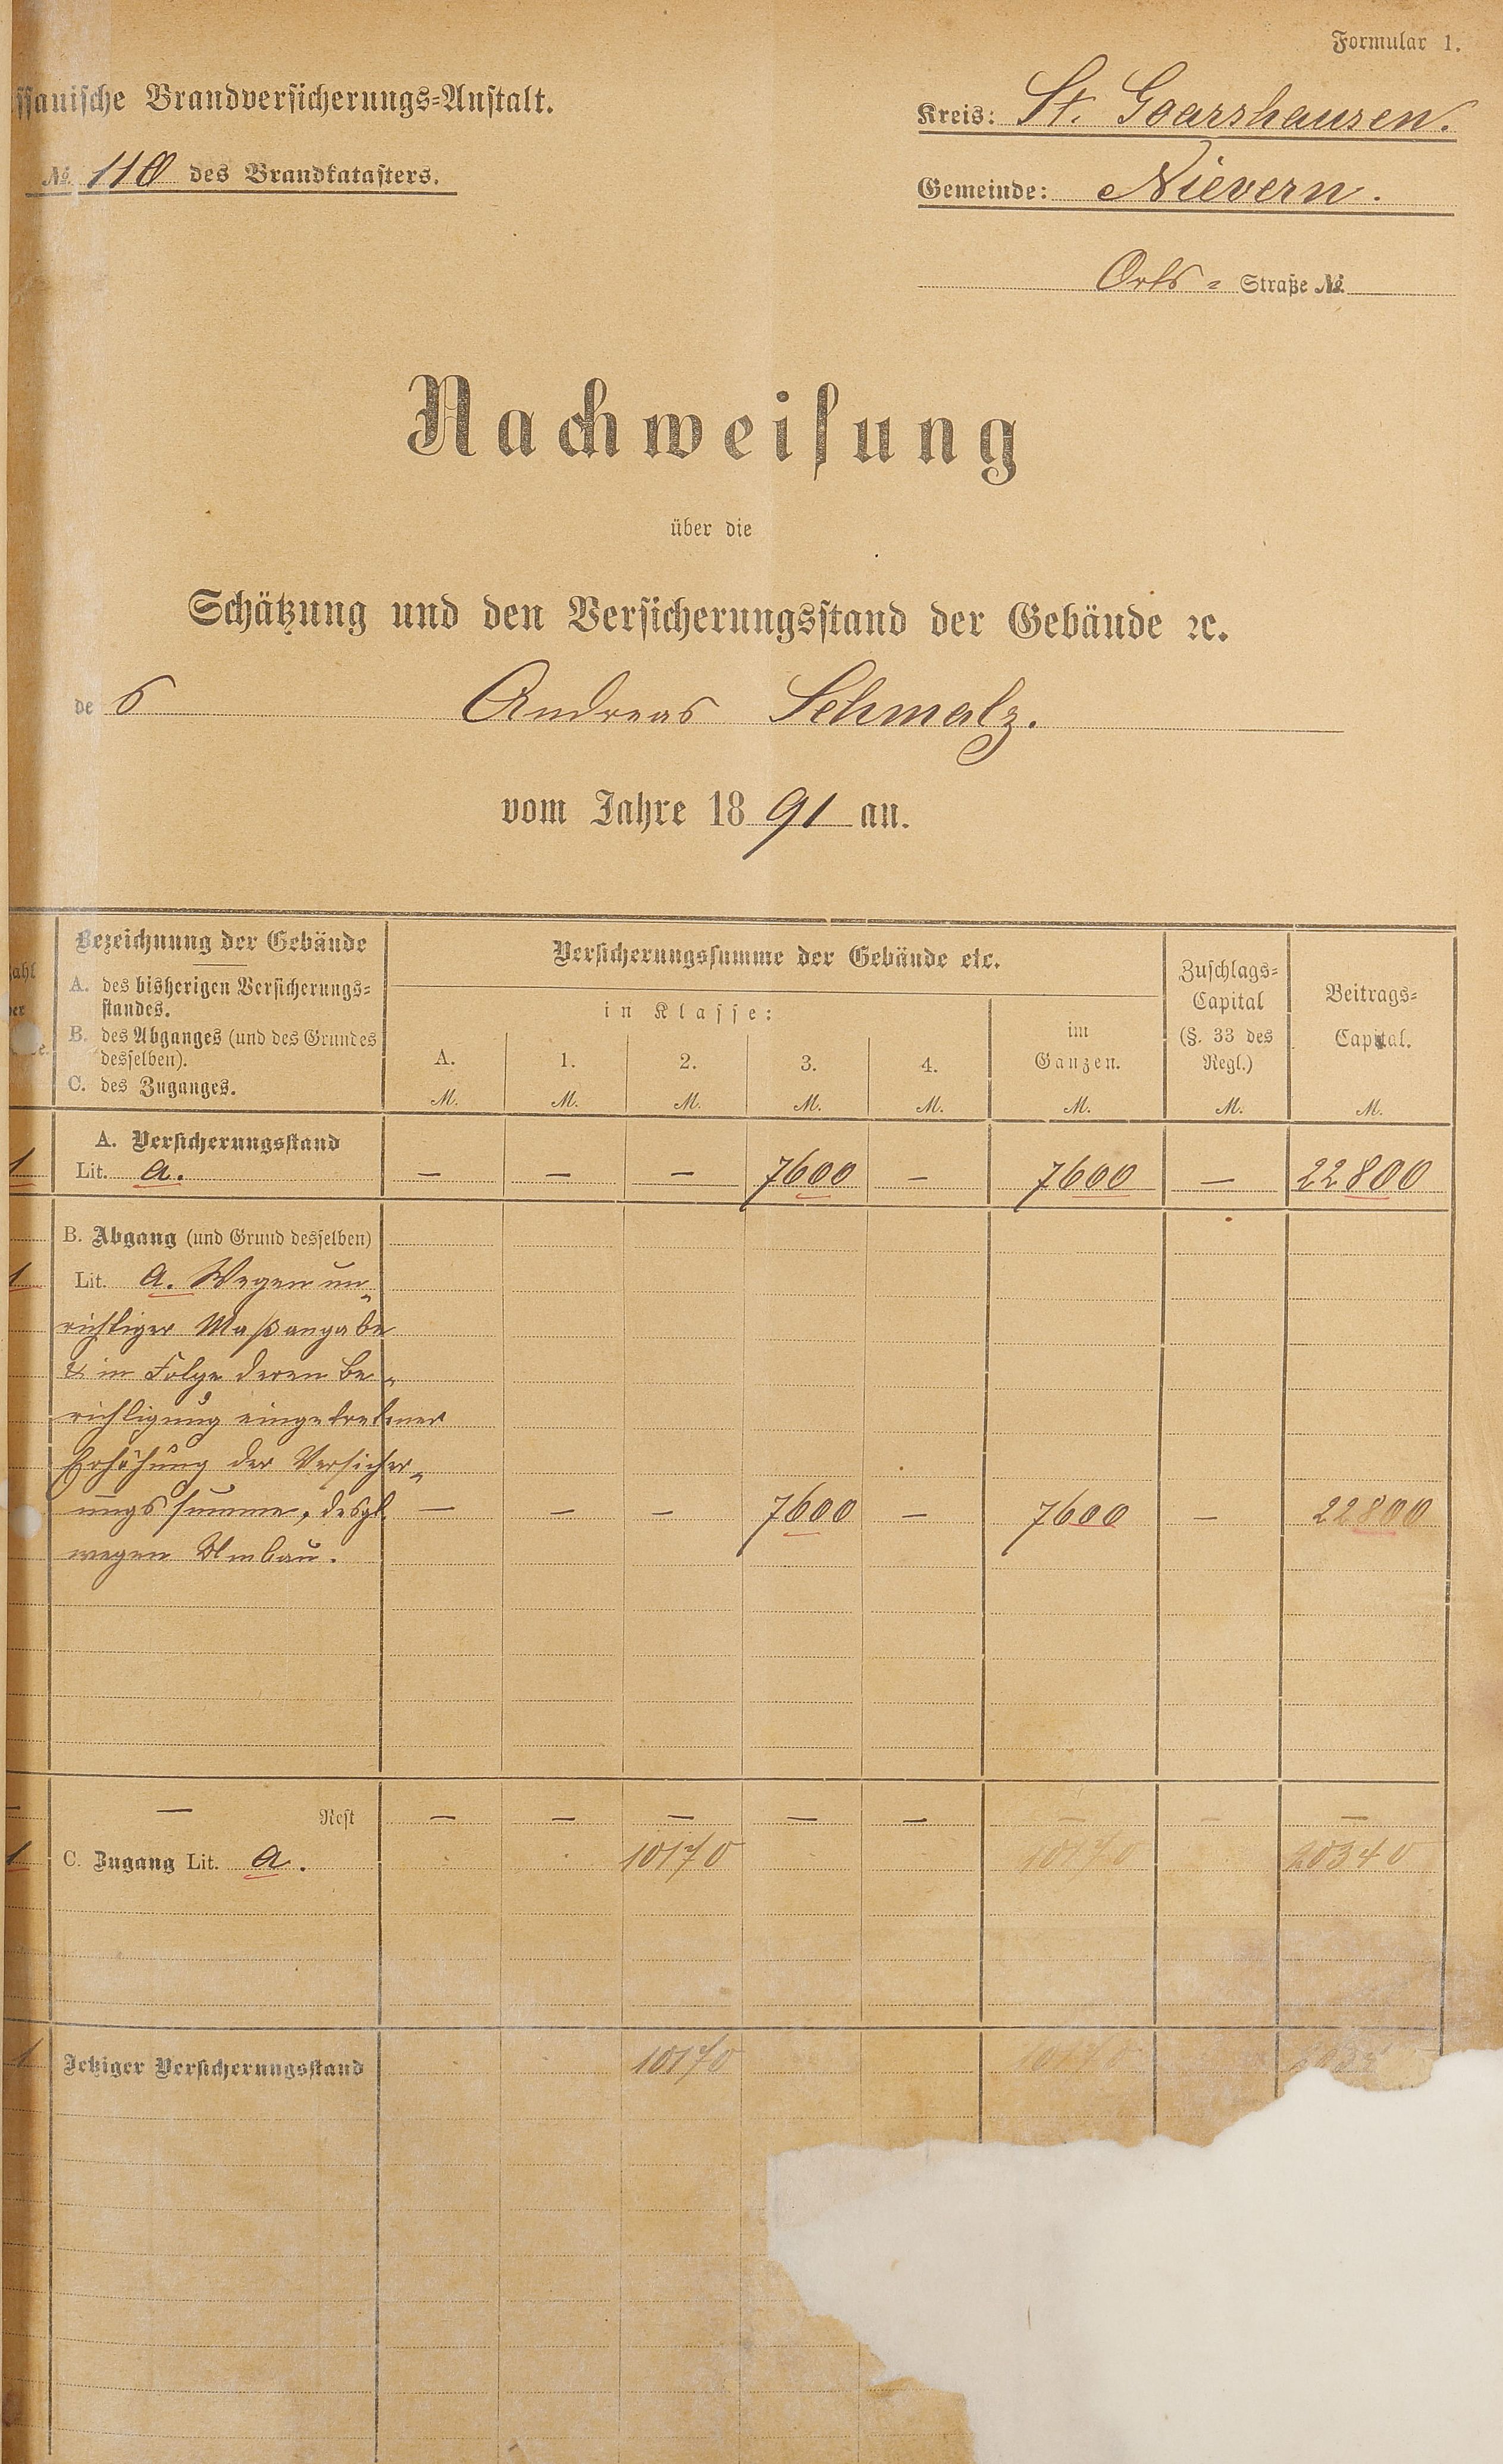 Formular 1.
ssauische Brandversicherungs=Anstalt.
Kreis: St. Goarshausen.
№ 110 des Brandkatasters.
Gemeinde: Nievern.
Orts = Straße №
Nachweisung
über die
Schätzung und den Versicherungsstand der Gebäude ꝛc.
des Andreas Schmalz.
vom Jahre 1891 an.
Bezeichnung der Gebäude
A. des bisherigen Versicherungs=
standes.
B. des Abganges (und des Grundes
desselben).
C. des Zuganges.
Versicherungssumme der Gebäude etc.
in Klasse:
A. 1. 2. 3. 4.
im
Ganzen.
Zuschlags=
Capital
(§. 33 des
Regl.)
Beitrags=
Capital.
M. M. M. M. M. M. M. M.
A. Versicherungsstand
1 Lit. a. — — — 7600 — 7600 — 22800
B. Abgang (und Grund desselben)
1 Lit. a. Wegen un=
richtiger Maßangabe
& in Folge deren Be=
richtigung eingetretener
Erhöhung der Versicher=
ungssumme, desgl. — — — 7600 — 7600 — 22800
wegen Umbau.
— — Rest — — — — — — — —
1 C. Zugang Lit. a. 10170 10170 20340
1 Jetziger Versicherungsstand 10170 10170